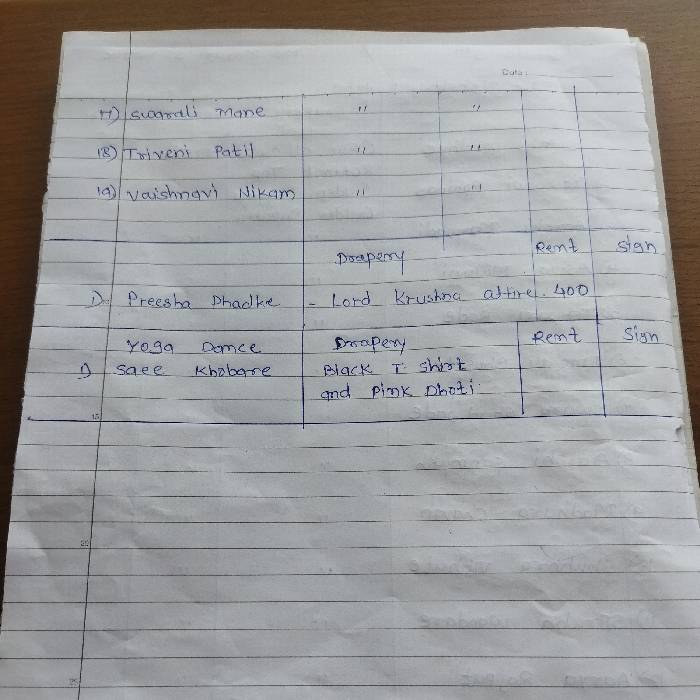 Date :
17) Swarali Mane " "
18) Triveni Patil " "
19) Vaishnavi Nikam " "
Drapery Rent Sign
1) Preesha Dhadke - Lord Krushna attire. 400
Yoga Dance Drapery Rent Sign
1) Saee Khobare Black T shirt
and Pink Dhoti
15
20
25